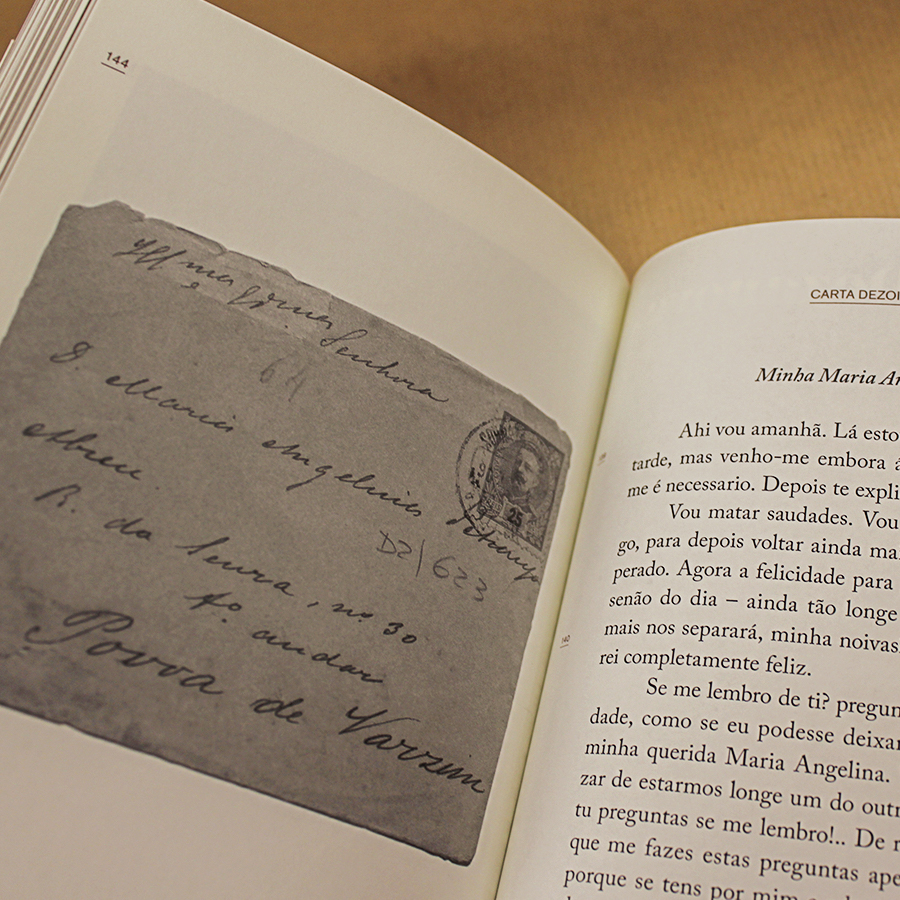 144
Senhora
D. Maria Angelina
Abreu
R. da Senra, no. 30
4o. andar
Povoa de Varzim
64
25
D2/623
CARTA DEZOI
Minha Maria An
Ahi vou amanhã. Lá esto
tarde, mas venho-me embora á
me é necessario. Depois te expli
Vou matar saudades. Vou
go, para depois voltar ainda ma
perado. Agora a felicidade para
senão do dia – ainda tão longe
mais nos separará, minha noivas
rei completamente feliz.
140
Se me lembro de ti? pregun
dade, como se eu podesse deixar
minha querida Maria Angelina.
zar de estarmos longe um do outr
tu preguntas se me lembro!.. De r
que me fazes estas preguntas ape
porque se tens por mim